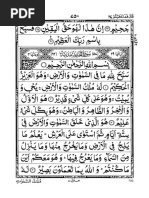 جَحِيمٍ ۝ إِنَّ هَٰذَا لَهُوَ حَقُّ الْيَقِينِ ۝ فَسَبِّحْ
بِاسْمِ رَبِّكَ الْعَظِيمِ ۝
بِسْمِ اللَّهِ الرَّحْمَٰنِ الرَّحِيمِ
سَبَّحَ لِلَّهِ مَا فِي السَّمَٰوَٰتِ وَالْأَرْضِ وَهُوَ الْعَزِيزُ
الْحَكِيمُ ۝ لَهُ مُلْكُ السَّمَٰوَٰتِ وَالْأَرْضِ يُحْيِي وَ
يُمِيتُ وَهُوَ عَلَىٰ كُلِّ شَيْءٍ قَدِيرٌ ۝ هُوَ الْأَوَّلُ
وَالْآخِرُ وَالظَّاهِرُ وَالْبَاطِنُ وَهُوَ بِكُلِّ شَيْءٍ عَلِيمٌ ۝
هُوَ الَّذِي خَلَقَ السَّمَٰوَٰتِ وَالْأَرْضَ فِي سِتَّةِ
أَيَّامٍ ثُمَّ اسْتَوَىٰ عَلَى الْعَرْشِ يَعْلَمُ مَا
يَلِجُ فِي الْأَرْضِ وَمَا يَخْرُجُ مِنْهَا وَمَا يَنْزِلُ مِنَ
السَّمَاءِ وَمَا يَعْرُجُ فِيهَا وَهُوَ مَعَكُمْ أَيْنَ
مَا كُنْتُمْ وَاللَّهُ بِمَا تَعْمَلُونَ بَصِيرٌ ۝